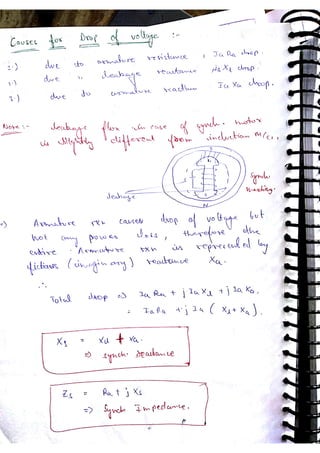 Causes for Drop of voltage :-
1.) due to armature resistance , IaRa drop.
2.) due " leakage reactance drop.
3.) due to armature reaction Ia Xa drop.
Note :- leakage flux in case of synch. motor
is slightly different from induction M/C,,
Synch
leakage
Armature rxn causes drop of voltage but
not any power , therefore the
entire Armature rxn is represented by
fictious (imaginary) reactance Xa.
∴
Total drop => IaRa + j Ia Xl + j Ia Xa.
= IaRa + j Ia ( Xl + Xa ).
Xs = Xl + Xa.
=> synch. reactance
Zs = Ra + j Xs
=> Synch Impedance.